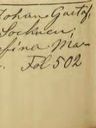 Johan Gustaf
Sochnen,
fina Ma-
Fol 502